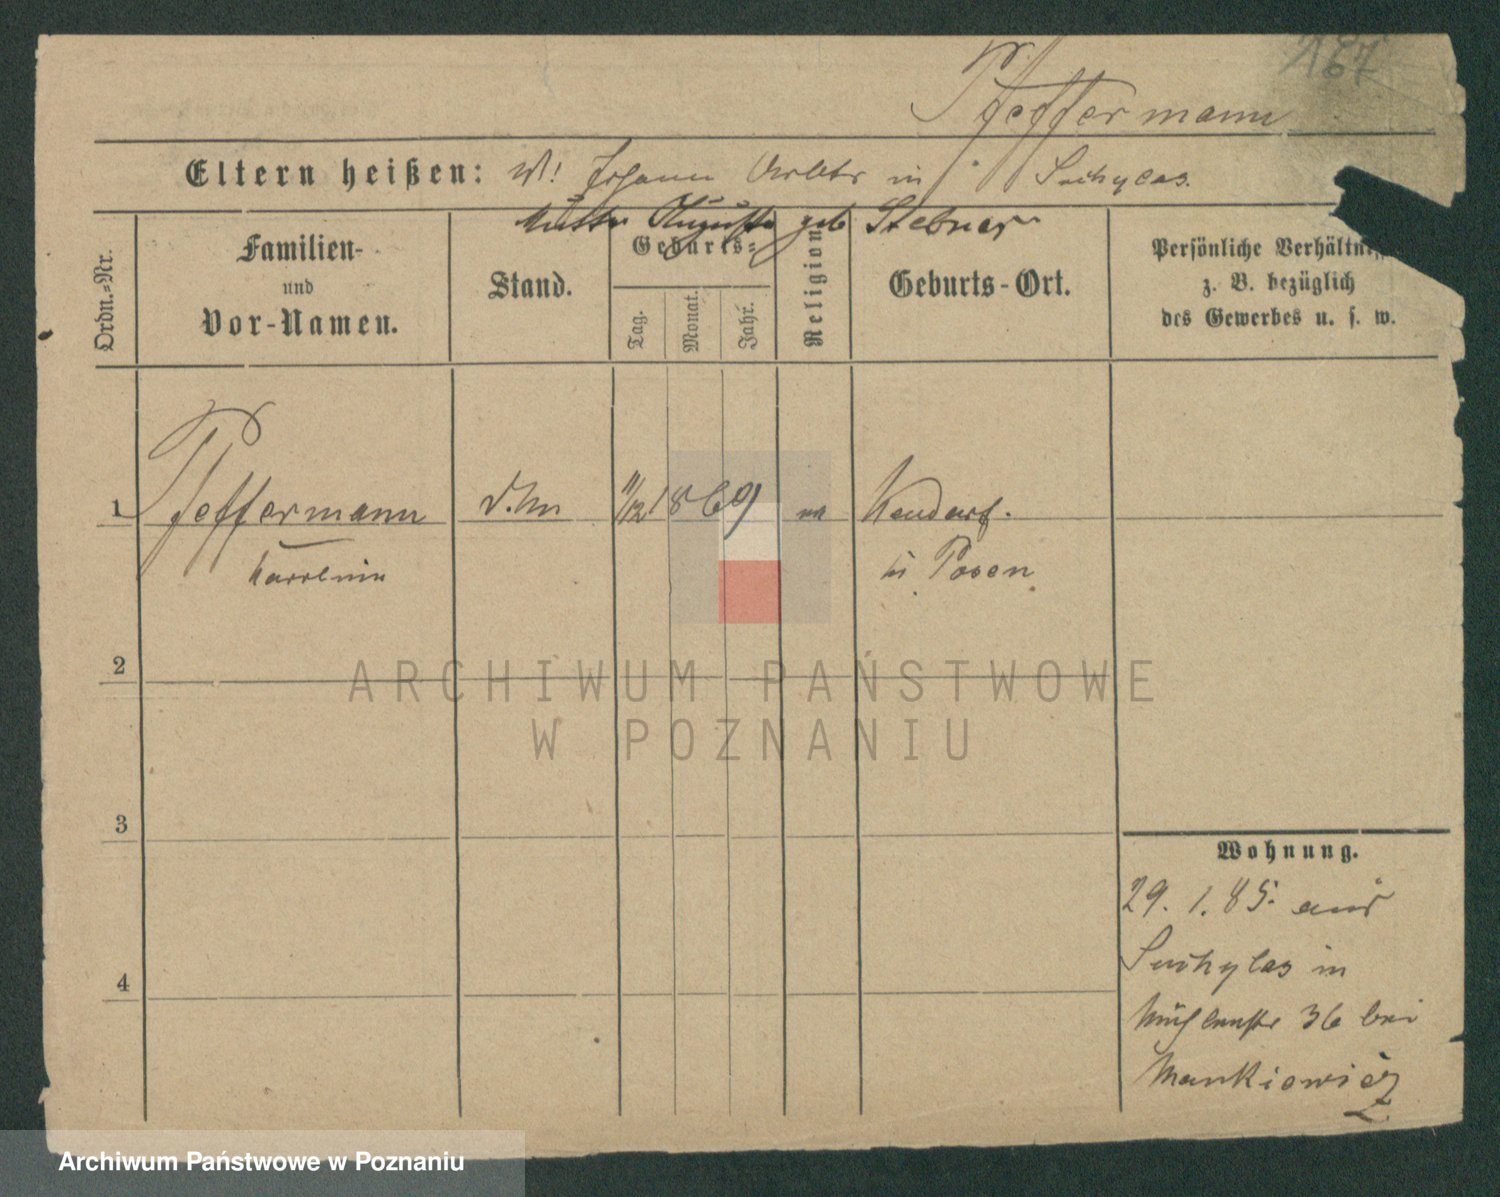 167
Pfeffermann
Eltern heißen: V! Johann Arbtr in Suchylas.
Mutter Auguste geb Stebner
Ordn.=Nr.
Familien-
und
Vor-Namen.
Stand.
Geburts=
Tag.
Monat.
Jahr.
Religion
Geburts-Ort.
Persönliche Verhältnisse
z. B. bezüglich
des Gewerbes u. s. w.
1 Pfeffermann 11/12 1869
Karoline in Posen
2
3
4
Wohnung.
29. 1. 85. aus
Suchylas in
Mühlenstr 36 bei
Mankiewicz
ARCHIWUM PAŃSTWOWE
W POZNANIU
Archiwum Państwowe w Poznaniu